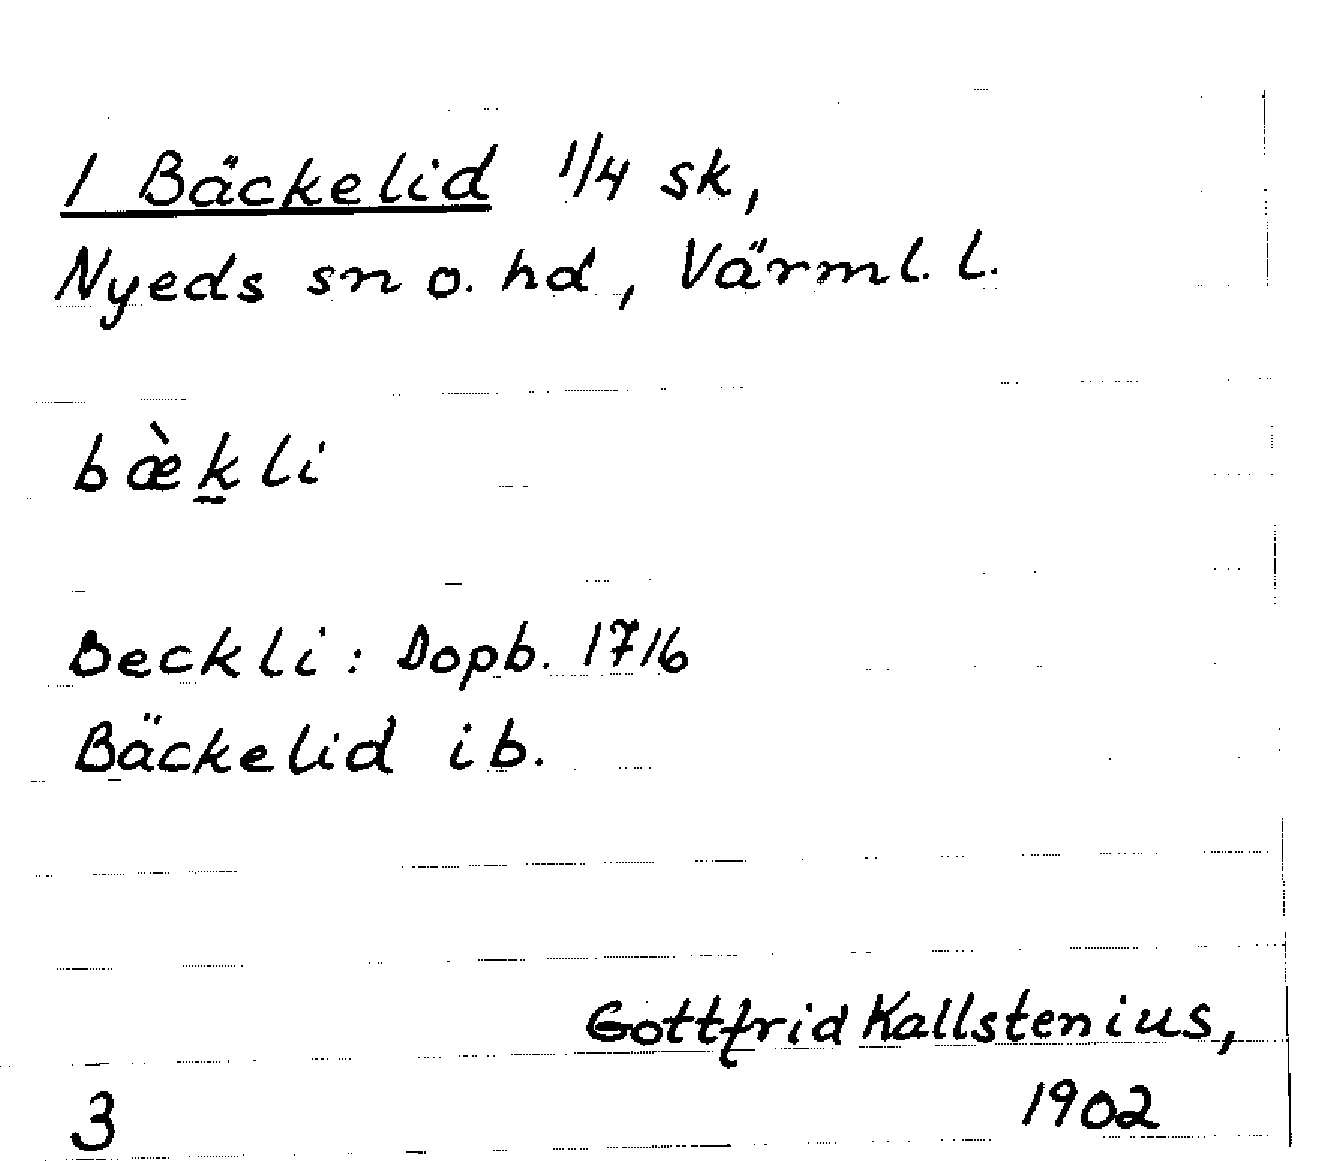 1 Bäckelid 1/4 sk,
Nyeds sn o. hd, Värml. l.
bæ̀k̲li
Beckli: Dopb. 1716
Bäckelid ib.
Gottfrid Kallstenius,
1902
3